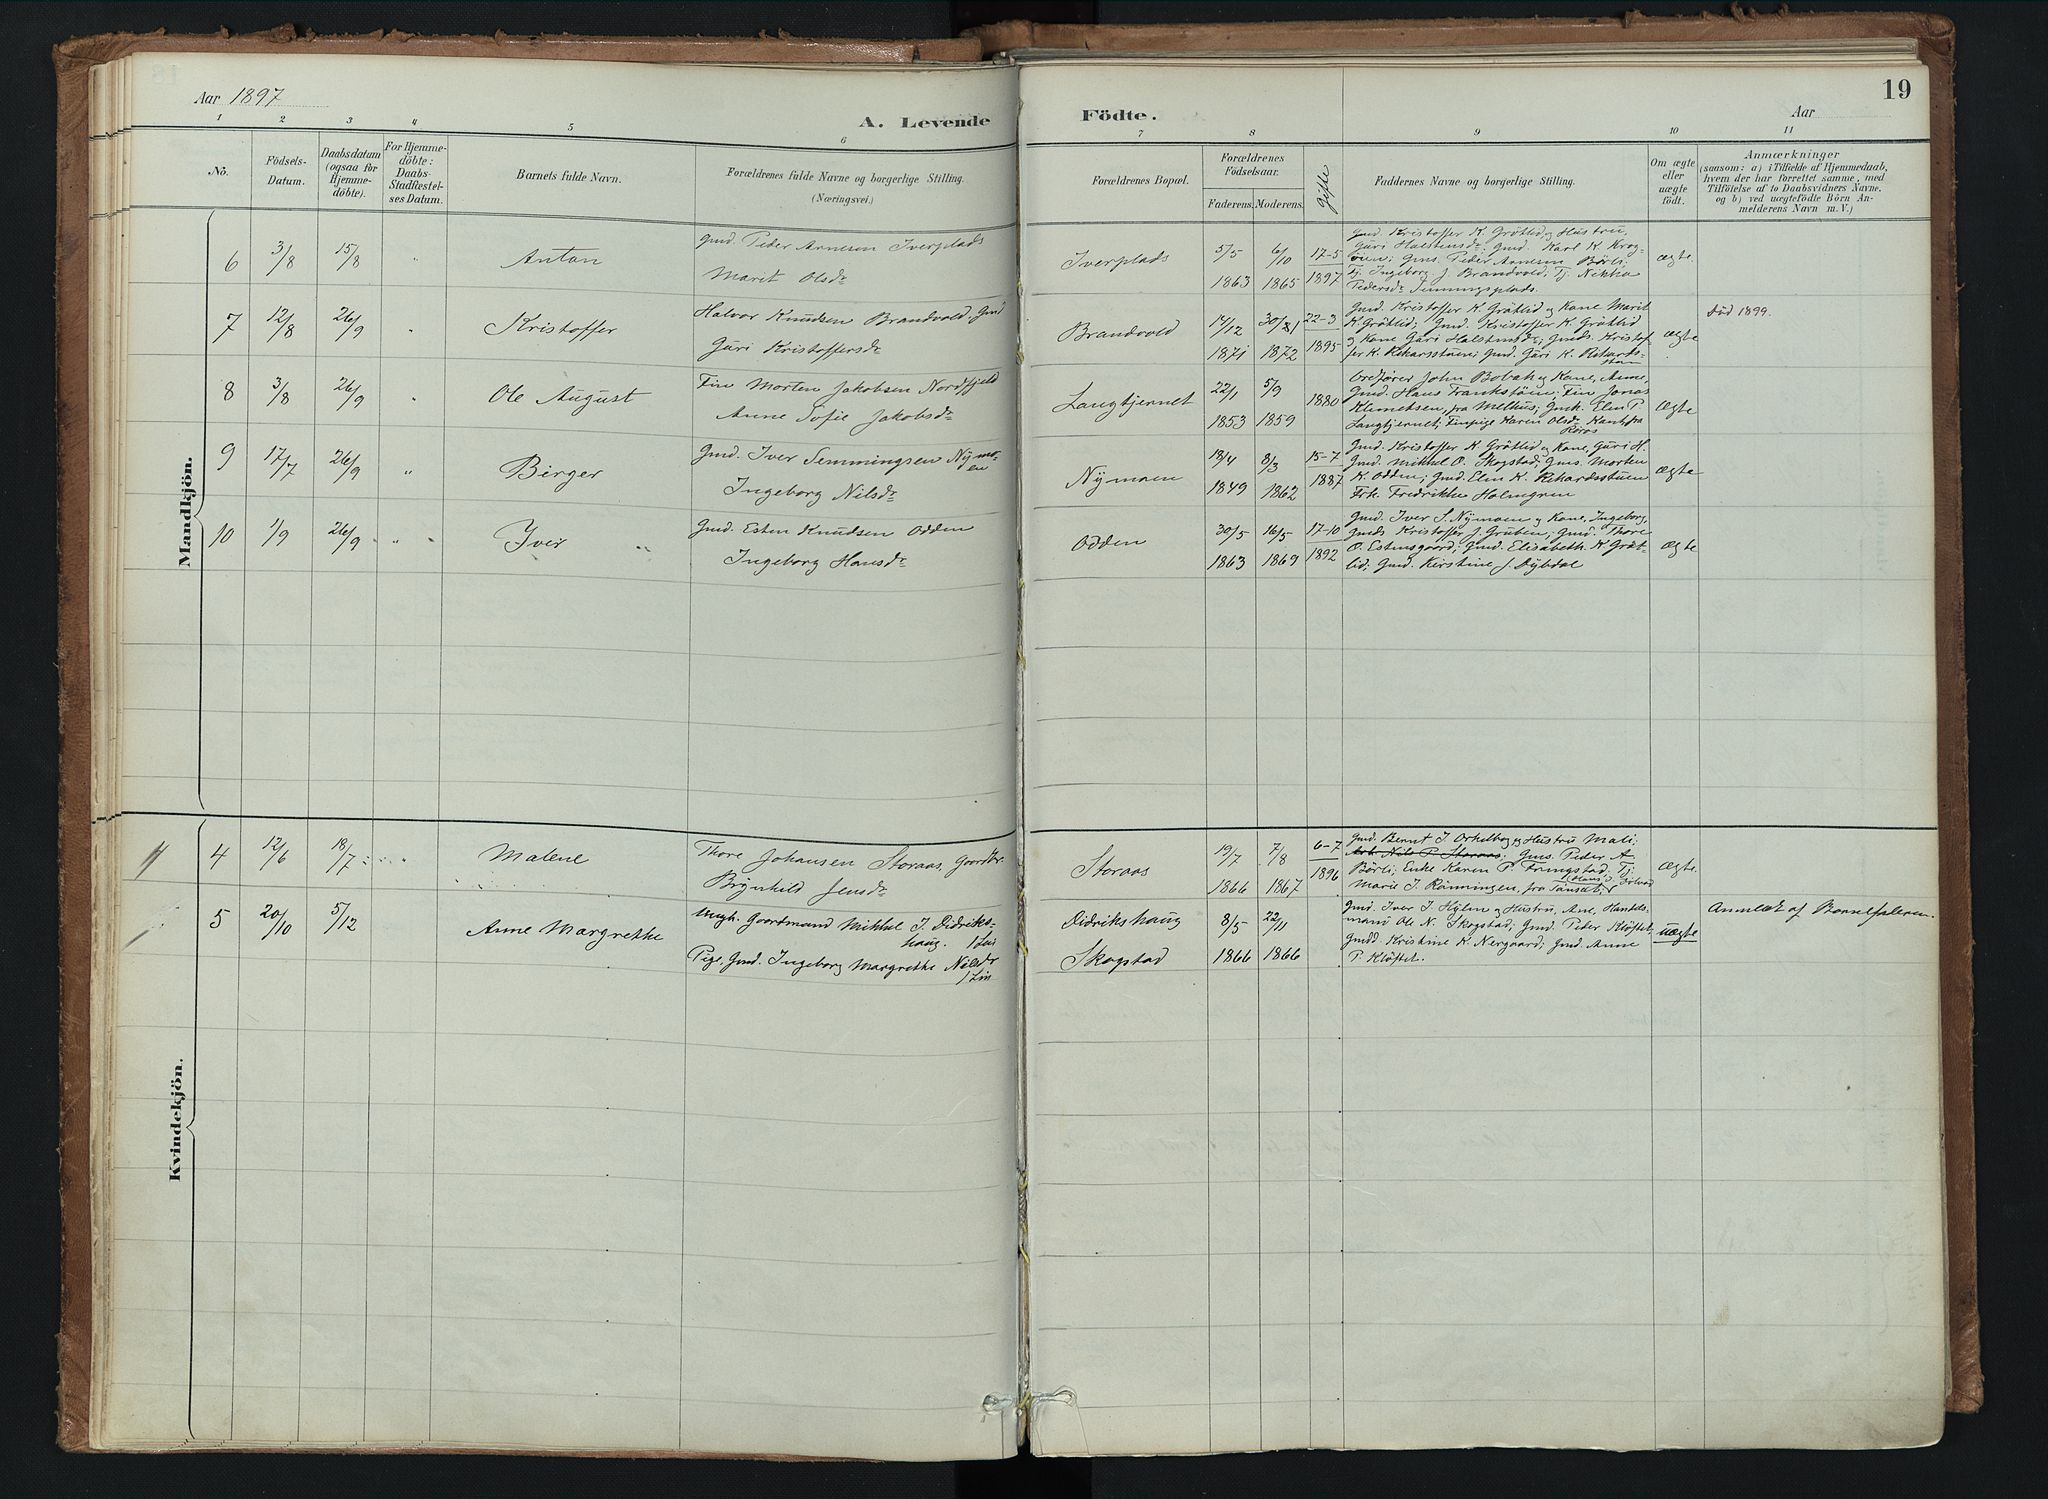 Aar 1897
A. Levende Födte.
Aar
19
1 2 3 4 5 6 7 8 9 10 11
No.
Födsels-
Datum.
Daabsdatum
(ogsaa for
Hjemme-
döbte).
For Hjemme-
döbte:
Daabs-
Stadfæstel-
ses Datum.
Barnets fulde Navn.
Forældrenes fulde Navne og borgerlige Stilling.
(Næringsvei.)
Forældrenes Bopæl.
Forældrenes
Födselsaar.
Faderens. Moderens.
Gifte
Faddernes Navne og borgerlige Stilling.
Om ægte
eller
uægte
födt.
Anmærkninger
(saasom: a) i Tilfælde af Hjemmedaab,
hvem der har forrettet samme, med
Tilföielse af to Daabsvidners Navne,
og b) ved uægtefödte Börn An-
melderens Navn m. V.)
Mandkjön.
6 3/8 15/8 " Anton
Gmd. Peder Arnesen Iverplads
Marit Olsdr
Iverplads
5/5 6/10 17-5
1863 1865 1897
Gmd. Kristoffer K. Grötlid og Hustru,
Guri Halstensdr; Gmd. Karl K. Krog-
öien; Gms. Peder Arnesen Börli;
Tj. Ingeborg J. Brandvold; Tj. Nikka
Pedersdr Semmingsplads.
ægte.
7 12/8 26/9 " Kristoffer
Halvor Knudsen Brandvold, Gmd
Guri Kristoffersdr
Brandvold
14/12 30/8 22-3
1871 1872 1895
Gmd. Kristoffer K. Grötlid og Kone Marit
K. Grötlid; Gmd. Kristoffer K. Grötlid
og Kone Guri Halstensdr; Gmds. Kristof-
fer K. Rekarsstuen; Gmd. Guri K. Rekards-
stuen
ægte
Död 1899.
8 3/8 26/9 " Ole August
Fin Morten Jakobsen Nordfjeld
Anne Sofie Jakobsdr
Langtjernet
22/1 5/9 1880
1853 1859
Ordförer John Bobak og Kone, Anne,
Gmd. Hans Frankstöen; Fin Jonas
Klemetsen, fra Melhus; Gmk. Elen P.
Langtjernet; Finpige Karen Olsdr Kant, fra
Röros
Ægte
9 17/7 26/9 " Birger
Gmd. Iver Semmingsen Nymo-
en
Ingeborg Nilsdr
Nymoen
18/4 8/3 15-7
1849 1862 1887
Gmd. Kristoffer K. Grötlid og Kone, Guri H.
Gmd. Mikkel O. Skogstad; Gms. Morten
K. Odden; Gmd. Elen K. Rekardsstuen
Frk. Fredrikke Holmgren
Ægte
10 1/9 26/9 " Iver
Gmd. Esten Knudsen Odden
Ingeborg Hansdr
Odden
30/5 16/5 17-10
1863 1869 1892
Gmd. Iver S. Nymoen og Kone, Ingeborg,
Gmds Kristoffer J. Gruben; Gmd. Thore
O. Estensgaard; Gmd. Elisabeth K Gröt-
lid; Gmd. Kirstine J. Dybdal
Ægte
Kvindekjön.
4 12/6 18/7 Malene
Thore Johansen Storaas, Gaardbr.
Brynhild Jensdr
Storaas
19/7 7/8 6-7
1866 1867 1896
Gmd. Bernt J Orkelbog og Hustru Mali;
Arb. Nils P. Storaas; Gms. Peder A.
Börli; Enke Karen P. Fringstad, Tj.
Marie J. Rönningen, fra Tönset;
Ægte.
5 20/10 5/12 Anne Margrethe
Ungk. Gaardmand Mikkel J. Didriks-
haug.
Pige, Gmd. Ingeborg Margrethe Nilsdr
Didrikshaug
Skogstad
8/5 22/11
1866 1866
Gmd. Iver J. Hylen og Hustru, Ane, Handels-
mand Ole N. Skogstad; Gmd. Peder Klöftet
Gmdd. Kristine K. Nergaard; Gmd. Anne
P. Klöftet.
uægte
Anmeldt af Barnefaderen.